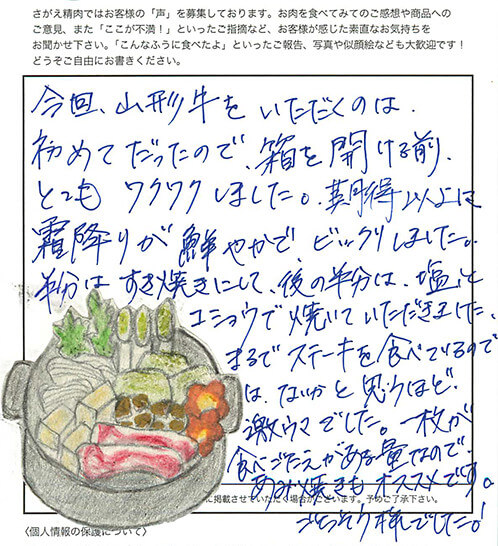 さがえ精肉ではお客様の「声」を募集しております。お肉を食べてみてのご感想や商品への
ご意見、また「ここが不満！」といったご指摘など、お客様が感じた素直なお気持ちを
お聞かせ下さい。「こんなふうに食べたよ」といったご報告、写真や似顔絵なども大歓迎です！
どうぞご自由にお書きください。
今回、山形牛をいただくのは、
初めてだったので、箱を開ける前、
とてもワクワクしました。期待以上に
霜降りが鮮やかで、ビックリしました。
半分はすき焼きにして、後の半分は、塩と
コショウで焼いていただきました。
まるでステーキを食べているので
は、ないかと思うほど、
激ウマでした。一枚が
食べごたえがある量なので、
あみ焼きもオススメです。
に掲載させていただく場合がございます。予めご了承下さい。
ごちそう様でした。!
〈個人情報の保護について〉